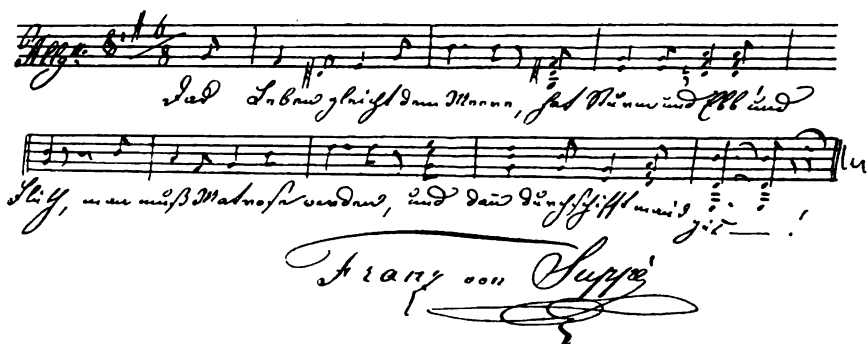 Allgo. 6/8
Das Leben gleicht dem Meere, hat Sturm und Ebb' und
Fluth, man muß Matrose werden, und dann durchschifft man's
gut — !
Franz von Suppé